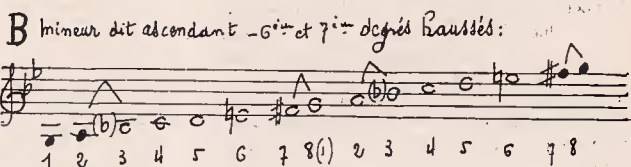 B mineur dit ascendant - 6ième et 7ième degrés haussés:
(b) (b)
1 2 3 4 5 6 7 8(1) 2 3 4 5 6 7 8